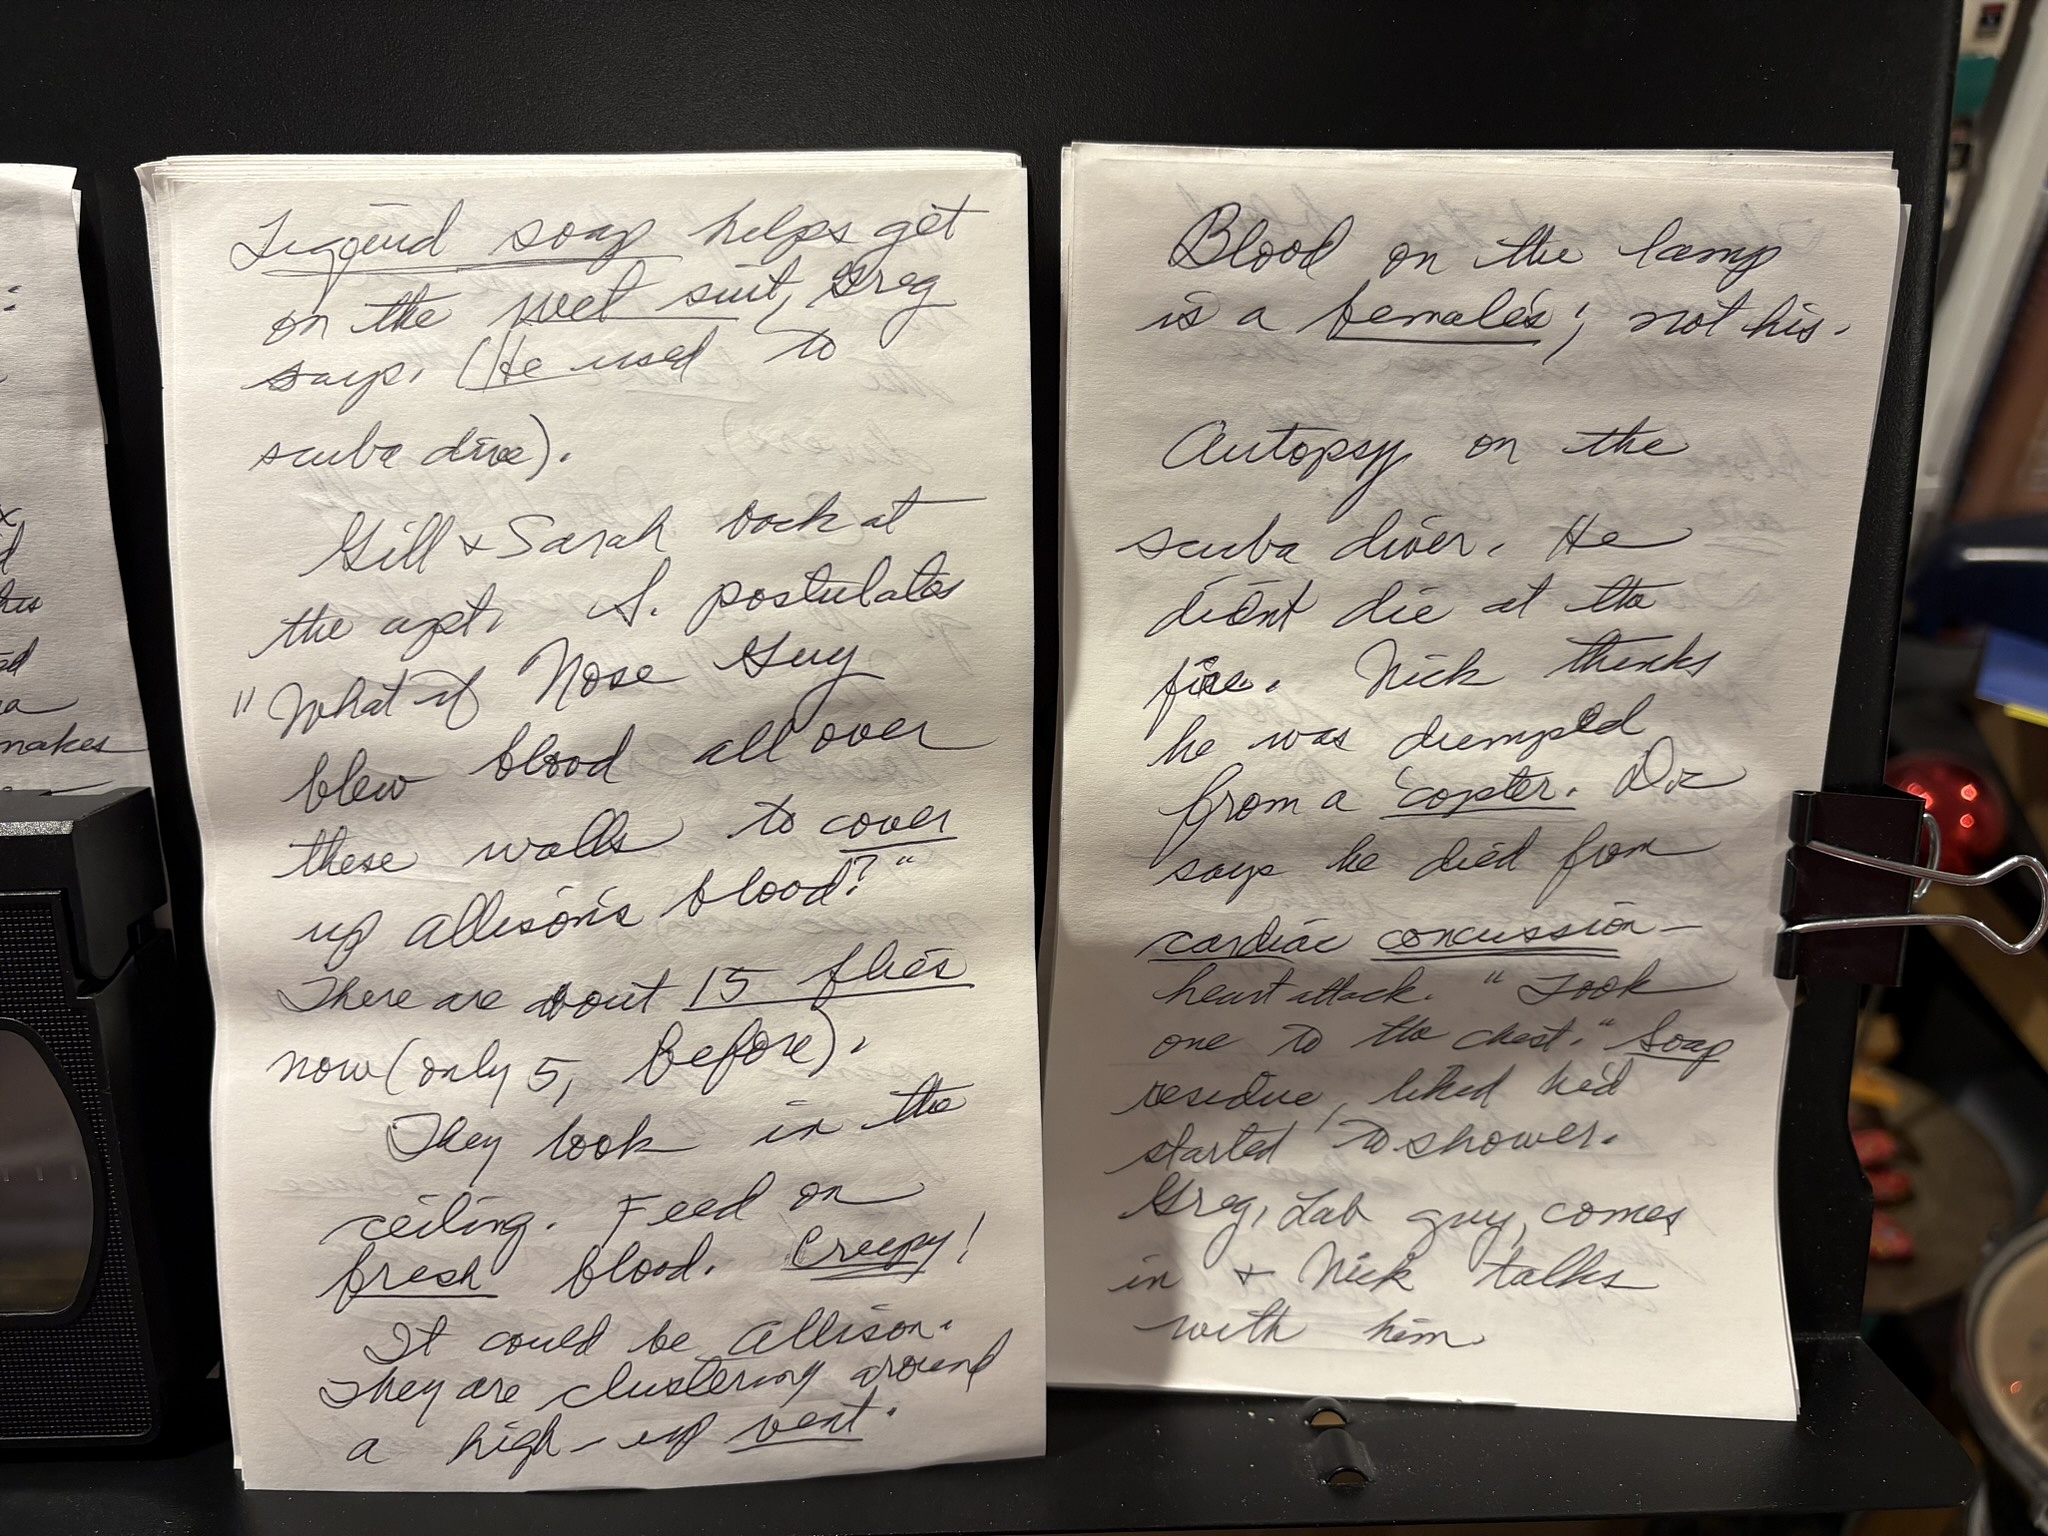 makes
Liqiuid soap helps get
on the wet suit, Greg
says. (He used to
scuba dive).
Gill & Sarah back at
the apt. S. postulates
"What if Nose Guy
blew blood all over
these walls to cover
up Allison's blood?"
There are about 15 flies
now (only 5, before).
They look in the
ceiling. Feed on
fresh blood. Creepy!
It could be Allison.
They are clustering around
a high-up vent.
Blood on the lamp
is a female's; not his.
Autopsy on the
scuba diver. He
didn't die at the
fire. Nick thinks
he was dumped
from a 'copter. Dr
says he died from
cardiac concussion-
heart attack. "Took
one to the chest." Soap
residue, liked he'd
started to shower.
Greg, Lab guy, comes
in & Nick talks
with him